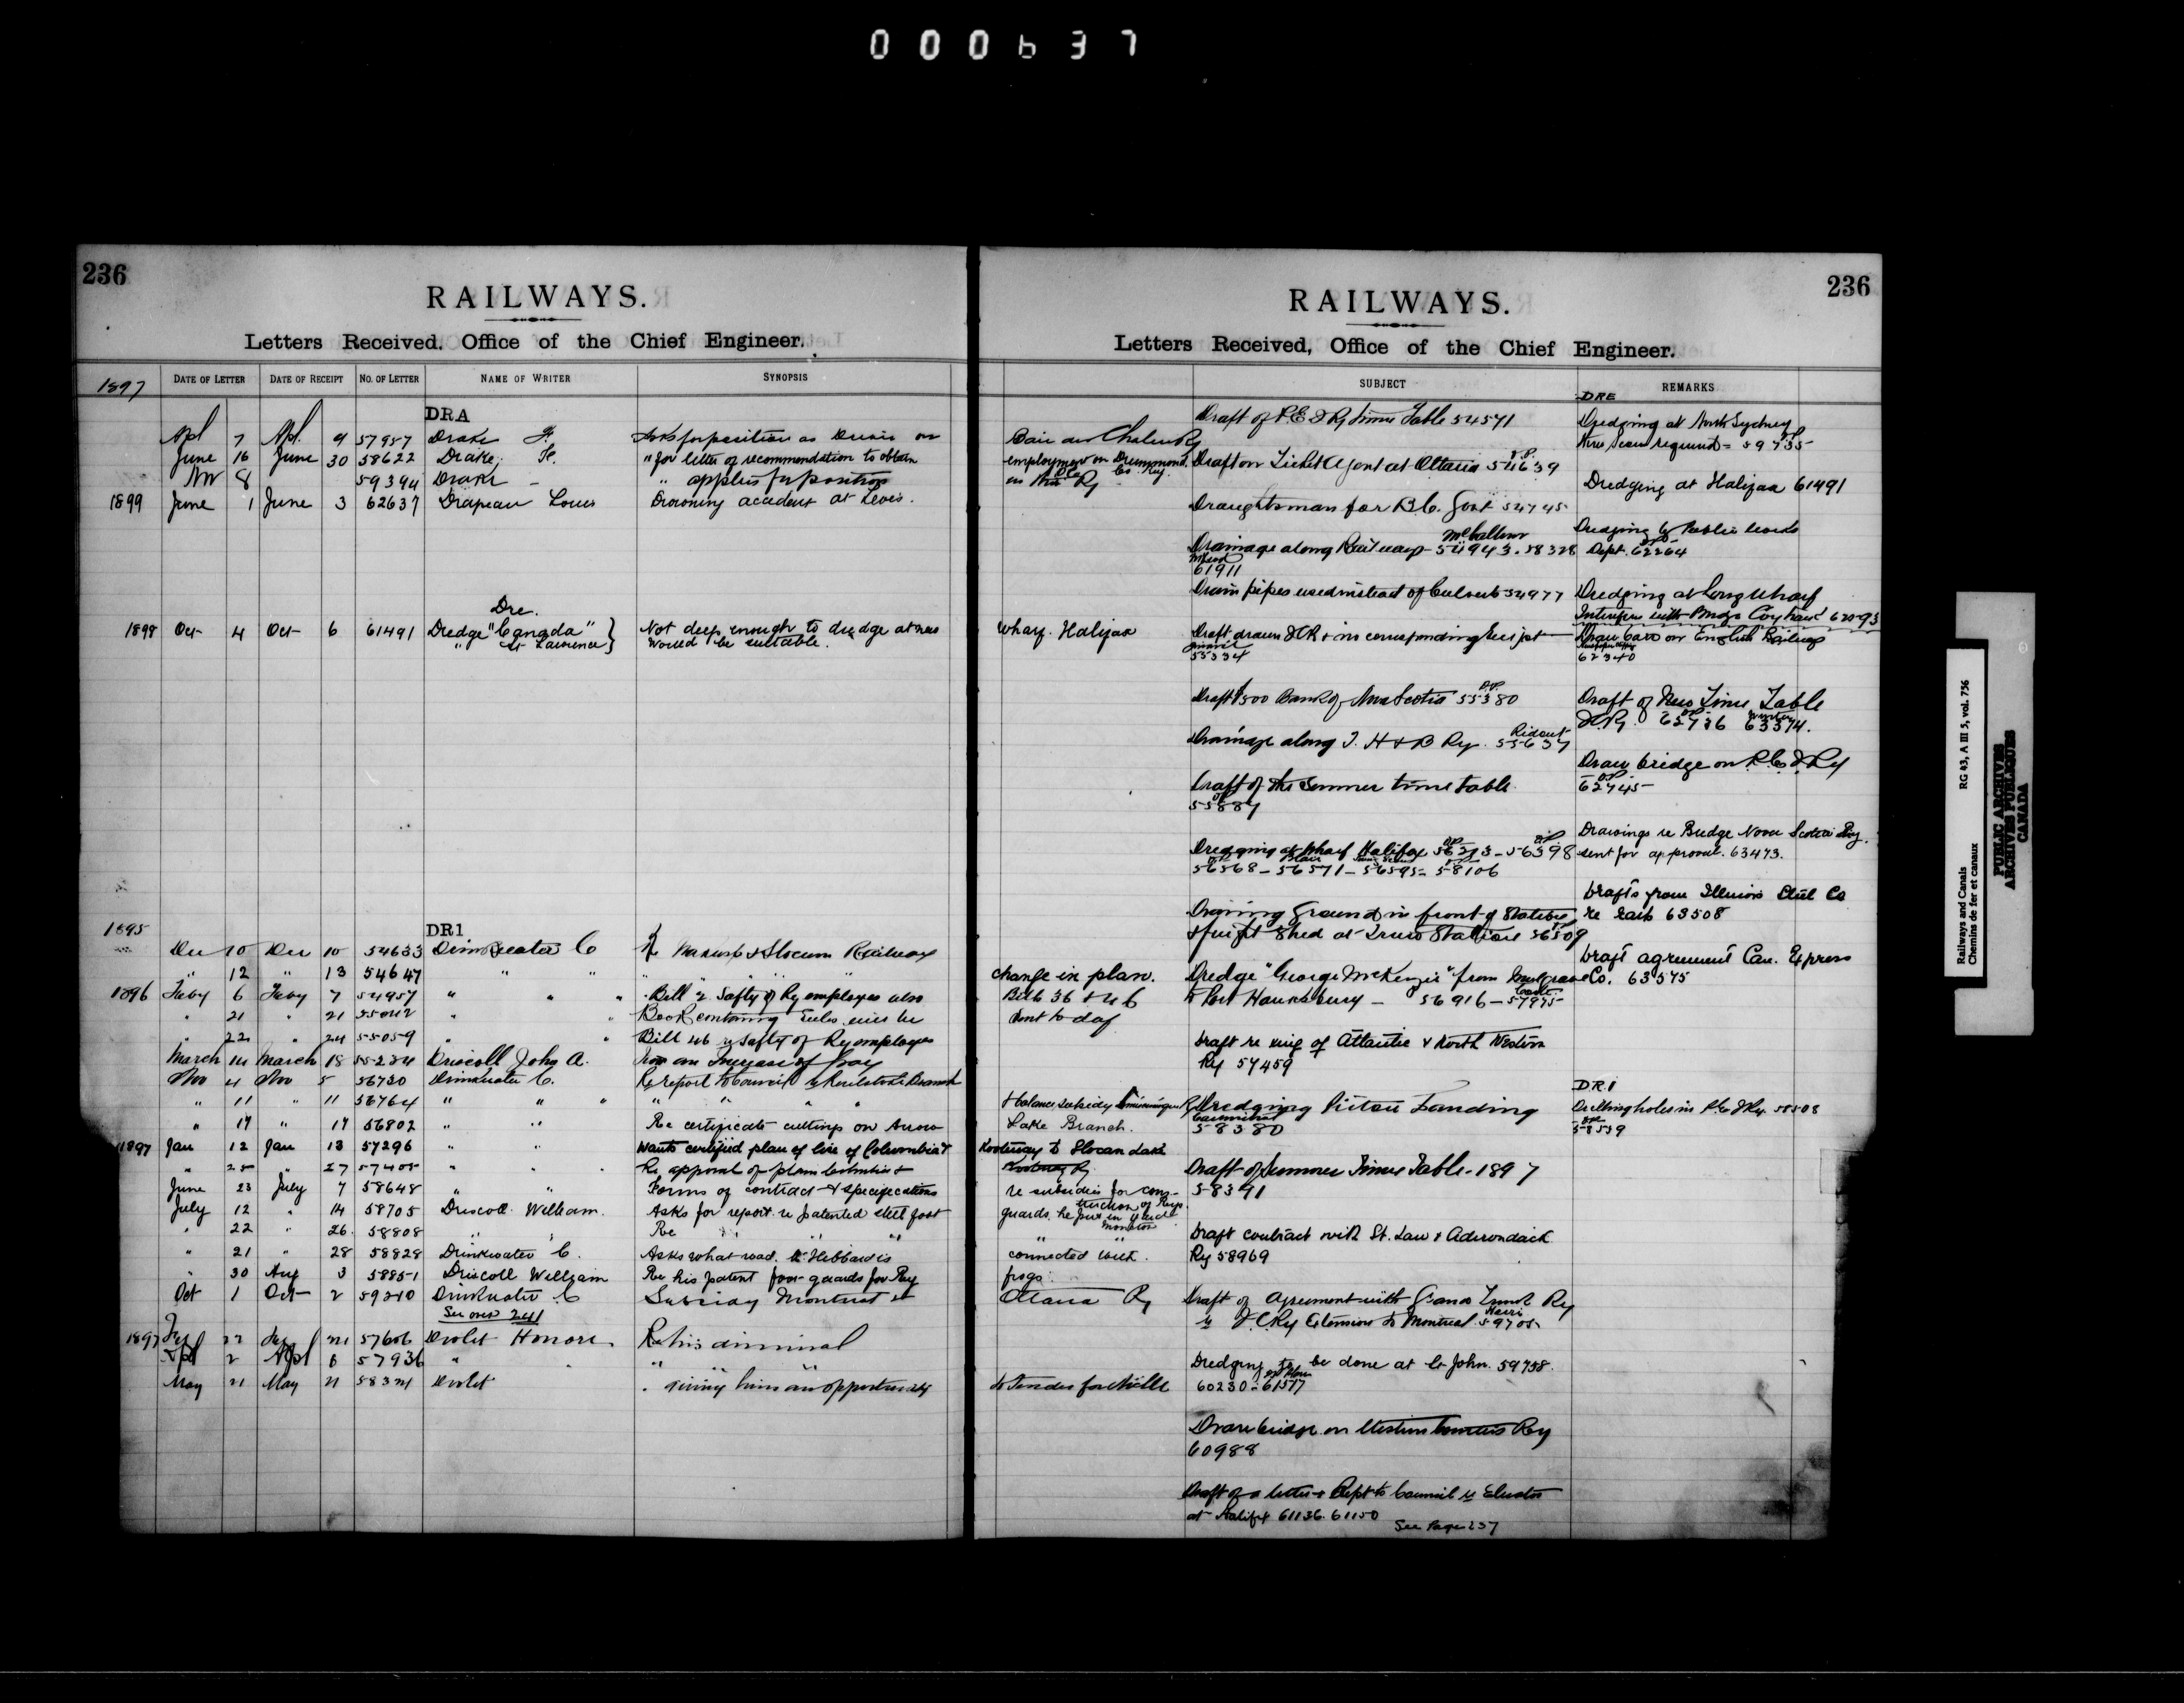 000637
236
RAILWAYS.
Letters Received, Office of the Chief Engineer.
1897 DATE OF LETTER DATE OF RECEIPT NO. OF LETTER NAME OF WRITER SYNOPSIS
DRA
Apl 7 Apl. 9 57957 Drake F. Asks for position as Driver on
June 16 June 30 58622 Drake, F. " for letter of recommendation to obtain
Nov 8 59394 Drake - " applies for position
1899 June 1 June 3 62637 Drapeau Louis Drowning accident at Levis.
Dre.
1898 Oct 4 Oct 6 61491 Dredge "Canada" } Not deep enough to dredge at new
" St Lawrence } Would be suitable.
1895
DRI
Dec 10 Dec 10 54633 Drinkwater C Nakusp & Slocan Railway
" 12 " 13 54647 " "
1896 Feby 6 Feby 7 54957 " " " Bill re Safty of Ry employes also
" 21 " 21 " " Book containing rules will be
" 22 " 24 55059 " Bill 46 re Safty of Ry employes
March 14 March 18 55234 Driscoll John A. an Increase of pay
Nov 4 Nov 5 56730 Drinkwater C. Re report to Council Branch
" 11 " 11 56764 " " " " " " "
" 17 " 17 56802 " " Re certificate cuttings on Arrow
1897 Jan 12 Jan 13 57296 " " Wants certified plan of line of Columbia &
" 25 " 27 57405 " " Re approval of plan Columbia &
June 23 July 7 58648 " " Forms of contract & specifications
July 12 " 14 58705 Driscoll William. Asks for report re patented steel foot
" 22 " 26. 58808 " " Re " " "
" 21 " 28 58828 Drinkwater C. Asks what road Mr Hibbard is
" 30 Aug 3 58851 Driscoll William Re his patent foot guards for Ry
Oct 1 Oct 2 59210 Drinkwater C Subsidy Montreal &
See over 241
1897 Feby 22 Feby 24 57606 Drolet Honore. Re his dismissal
Apl 2 Apl 6 57936 " " " " "
May 21 May 21 58324 Drolet " giving him an opportunity
236
RAILWAYS.
Letters Received, Office of the Chief Engineer.
SUBJECT REMARKS
Baie des Chaleurs Ry
employment on Drummond Co Ry.
in the Ry
wharf. Halifax
change in plan.
Bills 36 & 46
sent to day
& balance subsidy
Lake Branch.
Kootenay to Slocan Lake
Kootenay Ry
re subsidies for cons-
truction of Rys.
guards be put in yard
Moncton
" "
connected with.
frogs
Ottawa Ry
to tender for
Draft of P.E.I Ry Time Table 54571
Draft on Ticket Agent at Ottawa 54639
Draughtsman for B.C. Govt 54745
Drainage along Railways 54943. 58328
61911
Drain pipes used instead of Culverts 54977
Draft drawn ICR & in corresponding receipt
55334
Draft $500 Bank of Nova Scotia 55380
Drainage along T. H & B Ry. 55637
Rideout
Draft of the Summer time table
55887
Dredging at Wharf Halifax 56273 - 56398
56568 - 56571 - 56595 - 58106
Draining ground in front of Station
& freight Shed at Truro Station 56509
Dredge "George McKenzie" from Mulgrave
to Port Hawksbury - 56916 - 57975
Draft re ring of Atlantic & North Western
Ry 57459
Dredging Pictou Landing
58380
Draft of Summer Time Table - 1897
58391
Draft contract with St. Law & Adirondack
Ry 58969
Draft of Agreement with Grand Trunk Ry
re I.C.Ry Extension to Montreal 59705
Dredging to be done at St John. 59758.
60230 - 61517
Drawbridge on Western Counties Ry
60988
Draft of a letter & Rept to Council re Elevator
at Halifax 61136. 61150
See Page 237
DRE
Dredging at North Sydney
required - 59735
Dredging at Halifax 61491
Dredging by Public Works
Dept. 62264
Dredging at Long Wharf
Interferes with Bridge Coy 62093
Draw bars on English Railway
62340
Draft of New Time Table
I.C.Ry. 62726 63374.
Draw bridge on P.E.I. Ry
62745
Drawings re Bridge Nova Scotia Ry.
sent for approval. 63473.
Drafts from Illinois Steel Co
re Rails 63508
Draft agreement Can. Express
Co. 63575
D.R.I
Drilling holes in P.E.I Ry. 58508
58539
Railways and Canals
Chemins de fer et canaux
RG 43, A III 5, vol. 756
PUBLIC ARCHIVES
ARCHIVES PUBLIQUES
CANADA